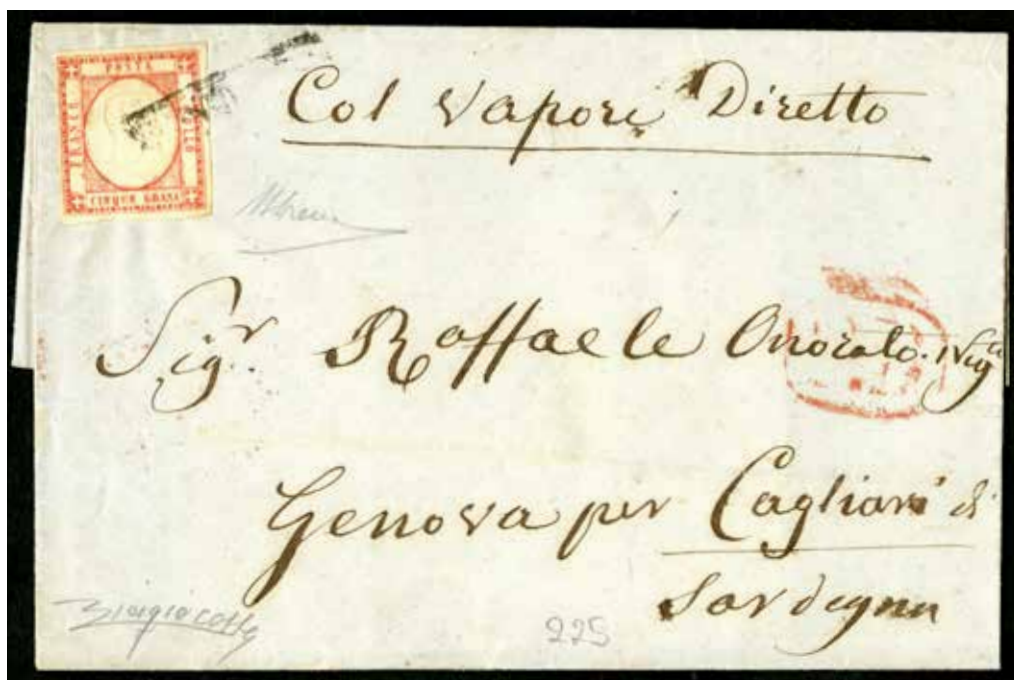 POSTA
FRANCO
BOLLO
CINQUE GRANA
Col Vapore Diretto
Sigr. Raffaele Onorato
Genova per Cagliari di
Sardegna
225